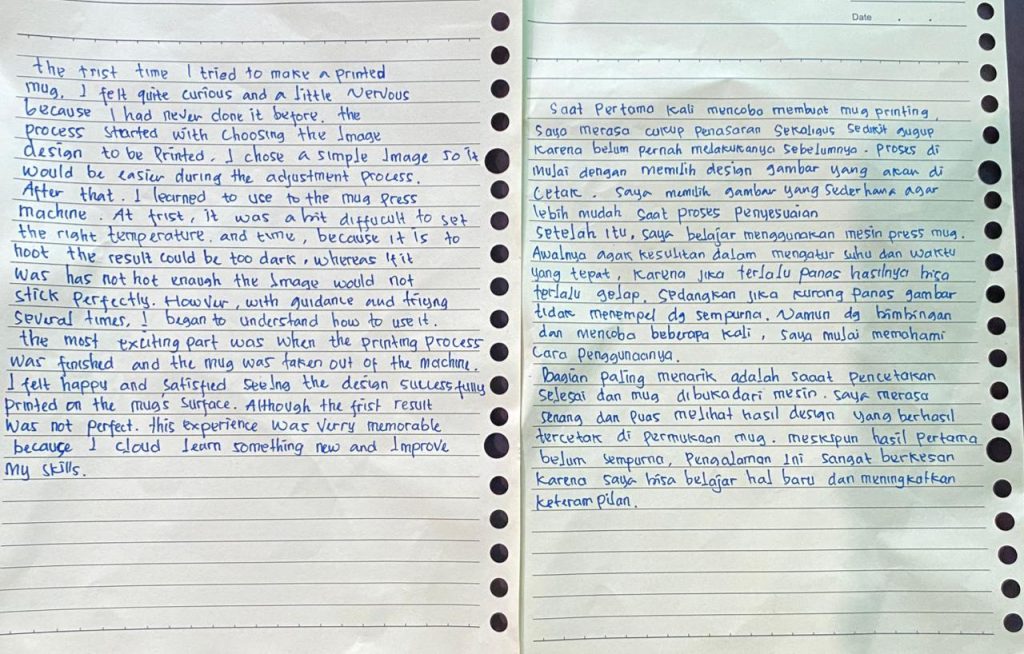 the frist time I tried to make a printed
mug, I felt quite curious and a little Nervous
because I had never done it before. the
process started with choosing the Image
design to be Printed. I chose a simple Image so it
would be easier during the adjustment process.
After that. I learned to use to the mug Press
machine. At frist, it was a bit diffucult to set
the right temperature. and time, because it is to
hoot the result could be too dark, whereas if it
was has not hot enough the Image would not
stick Perfectly. However, with guidance and triyng
several times, I began to understand how to use it.
the most exciting part was when the printing process
was finished and the mug was taken out of the machine.
I felt happy and satisfied seeing the design successfully
printed on the mug's surface. Although the frist result
was not perfect. this experience was verry memorable
because I cloud learn something new and Improve
My skills.
Date . .
Saat Pertama Kali mencoba membuat mug printing,
saya merasa cukup Penasaran Sekaligus sedikit gugup
karena belum pernah melakukanya sebelumnya. Proses di
mulai dengan memilih design gambar yang akan di
cetak. Saya memilih gambar yang Sederhana agar
lebih mudah saat proses penyesuaian
setelah itu, saya belajar menggunakan mesin press mug.
Awalnya agak kesulitan dalam mengatur suhu dan waktu
yang tepat, karena jika terlalu panas hasilnya bisa
terlalu gelap, sedangkan jika kurang panas gambar
tidak menempel dg sempurna. Namun dg bimbingan
dan mencoba beberapa kali, saya mulai memahami
Cara penggunaanya.
Bagian paling menarik adalah saaat pencetakan
selesai dan mug dibuka dari mesin. saya merasa
senang dan puas melihat hasil design yang berhasil
tercetak di permukaan mug. meskipun hasil pertama
belum sempurna, Pengalaman Ini sangat berkesan
karena saya bisa belajar hal baru dan meningkatkan
keterampilan.